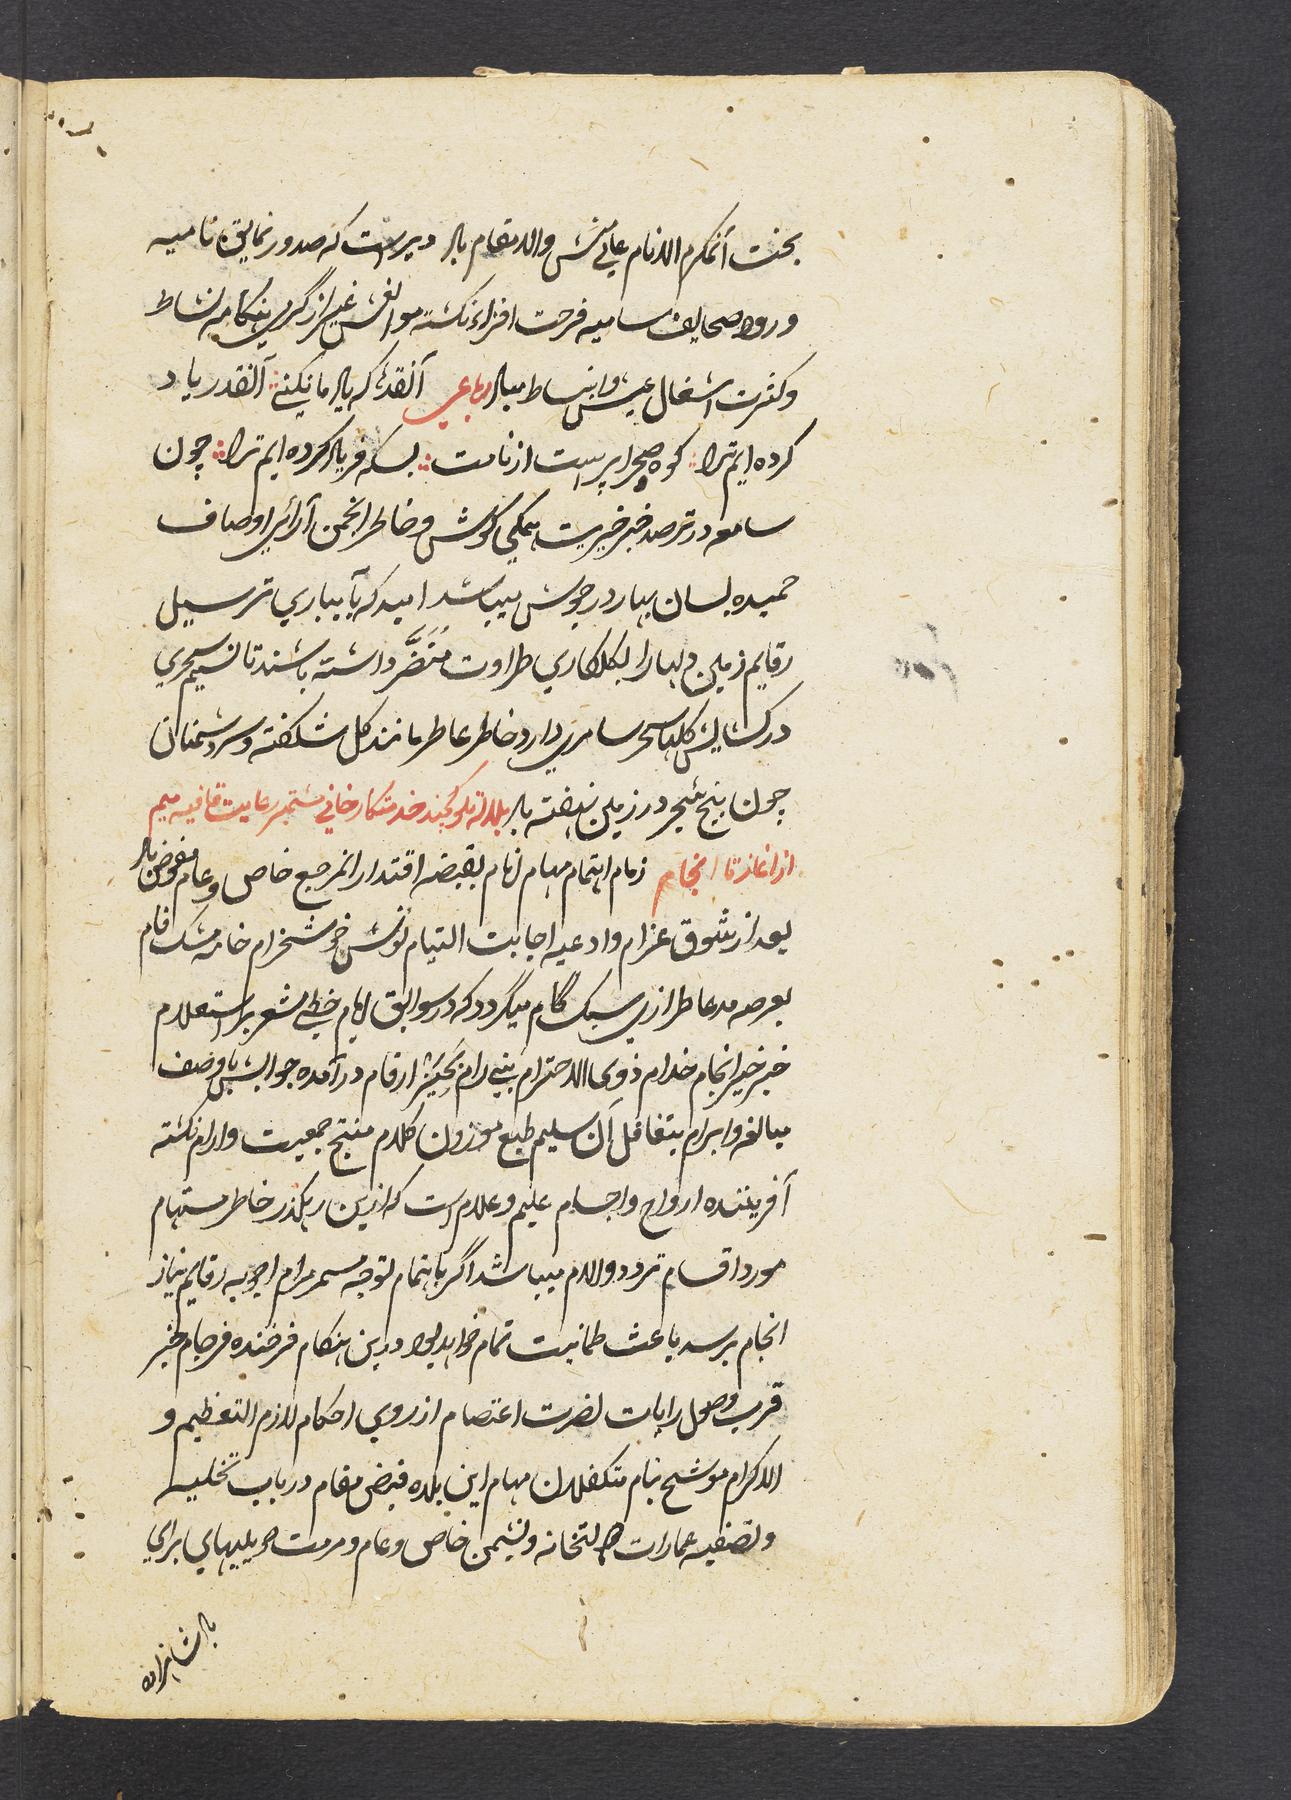 بخت آنمکرم الانام عالی منش والا مقام باد دیریست که صدور نمایق نامیه
ورود صحایف سامیه فرحت افزا نکشته موانعش غیر از گرمی هنکامه نشاط
وکثرت اشغال عیش وانبساط مباد رباعی آنقدر که یاد ما نیکنی آنقدر یاد
کرده ایم ترا کوه وصحرا پرست از نامت بسکه فریاد کرده ایم ترا چون
سامعه در ترصد خبر خیریت همکی کوش و خاطر انجمن آرائی اوصاف
حمیده بسان بهار در جوش میباشد امید که بآبیاری ترسیل
رقایم زمین دلها را بکلکاری طراوت مُنَضَّر داشته باشند تا نسیم سحری
در کشایش کلها سحر سامری دارد خاطر عاطر مانند کل شکفته و سر دشمنان
چون بیخ شجر در زمین نهفته باد خدمتکار خانی مشتمبر رعایت قافیه میم
از اغاز تا انجام زمام اهتمام مهام انام بقبضه اقتدار انمرجع خاص وعام مفوض باد
بعد از شوق عزام وادعیه اجابت التیام توسن خوشخرام خامه مشک فام
بعرصه مدعا طرازی سبک گام میگردد که در سوابق ایام خطی مشعر بر استعلام
خبر خیر انجام خدام ذوی الاحترام بحیز ارقام در آمده جوابش با وصف
مبالغه وابرام بتغافل آن سلیم طبع موزون کلام منتج جمعیت وارام نکشته
آفریننده ارواح واجسام علیم وعلام است که ازین رهکذر خاطر مستهام
مورد اقسام تردد والام میباشد اگر باهتمام توجه مسمر مرام اجوبه رقایم نیاز
انجام برسد باعث طمانیت تمام خواهد بود درین هنکام فرخنده فرجام خبر
قرب وصول رایات نصرت اعتصام از روی احکام لازم التعظیم و
الاکرام موشح بنام متکفلان مهام این بلده فیض مقام در باب تخلیه
وتصفیه عمارات دولتخانه ونشیمن خاص وعام ومرمت حویلیهای برای
بادشاهزاده